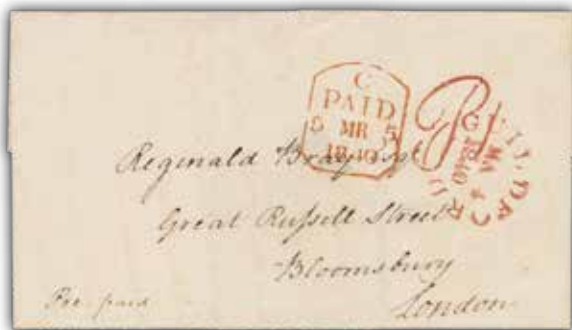 C
PAID
5 MR 5
1840
P1
GUILDFORD
MA 4
1840
Reginald Bray Esqr
Great Russell Street
Bloomsbury
London
Pre-paid